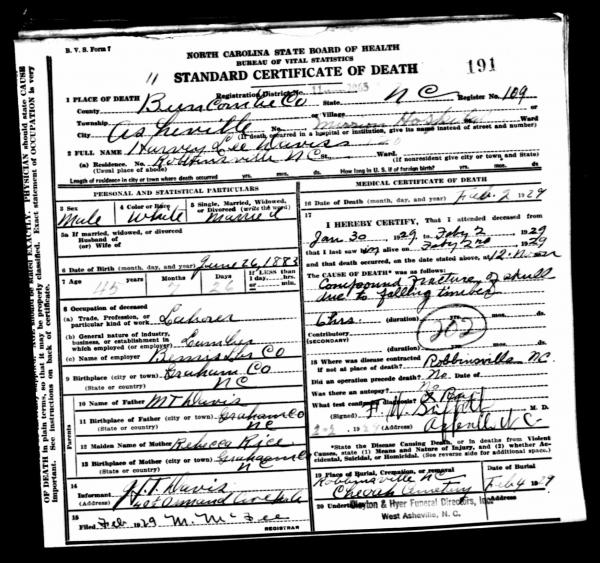 B. V. S. Form 7
NORTH CAROLINA STATE BOARD OF HEALTH
BUREAU OF VITAL STATISTICS
11 STANDARD CERTIFICATE OF DEATH 191
1 PLACE OF DEATH Registration District No.
County Buncombe Co State N C Register No. 109
Township or Village
City Asheville No. Mission Hospital Ward
(If death occurred in a hospital or institution, give its name instead of street and number)
2 FULL NAME Harvey Lee Davis
(a) Residence. No. Robbinsville NC St. Ward.
(Usual place of abode) (If nonresident give city or town and State)
Length of residence in city or town where death occurred yrs. mos. ds. How long in U. S. if of foreign birth? yrs. mos. ds.
PERSONAL AND STATISTICAL PARTICULARS
3 Sex 4 Color or Race 5 Single, Married, Widowed, or Divorced (write the word)
Male White Married
5a If married, widowed, or divorced
Husband of
(or) Wife of
6 Date of Birth (month, day, and year) June 26, 1883
7 Age Years Months Days If LESS than 1 day, hrs. or min.
45 7 26
8 Occupation of deceased
(a) Trade, Profession, or particular kind of work Laborer
(b) General nature of industry, business, or establishment in which employed (or employer) Lumber
(c) Name of employer Bemis Lbr Co
9 Birthplace (city or town) Graham Co
(State or country) NC
Parents
10 Name of Father MT Davis
11 Birthplace of Father (city or town) Graham Co
(State or country) NC
12 Maiden Name of Mother Rebecca Rice
13 Birthplace of Mother (city or town) Graham Co
(State or country) NC
14
Informant Davis
(Address)
15
Filed Feb 1929 M. McFee
REGISTRAR
MEDICAL CERTIFICATE OF DEATH
16 Date of Death (month, day, and year) Feb. 2 1929
17
I HEREBY CERTIFY, That I attended deceased from
Jan 30 1929 to Feby 2 1929
that I last saw him alive on Feby 2nd 1929
and that death occurred, on the date stated above, at 12. Noon
The CAUSE OF DEATH* was as follows:
Compound fracture of skull
due to falling timber
6 hrs. (duration) yrs. mos. ds.
Contributory 202
(SECONDARY)
(duration) yrs. mos. ds.
18 Where was disease contracted
if not at place of death? Robbinsville NC.
Did an operation precede death? No Date of
Was there an autopsy? No
What test confirmed diagnosis? X Ray
(Signed) M. D.
2-2, 1929 (Address) Asheville N. C.
*State the Disease Causing Death, or in deaths from Violent Causes, state (1) Means and Nature of Injury, and (2) whether Accidental, Suicidal, or Homicidal. (See reverse side for additional space.)
19 Place of Burial, Cremation, or removal Date of Burial
Robbinsville NC
Cemetery Feb 4 1929
20 Undertaker Clayton & Hyer Funeral Directors, Inc.
West Asheville, N. C.
OF DEATH in plain terms, so that it may be properly classified. Exact statement of OCCUPATION is very
important. See instructions on back of certificate.
EXACTLY. PHYSICIAN should state CAUSE